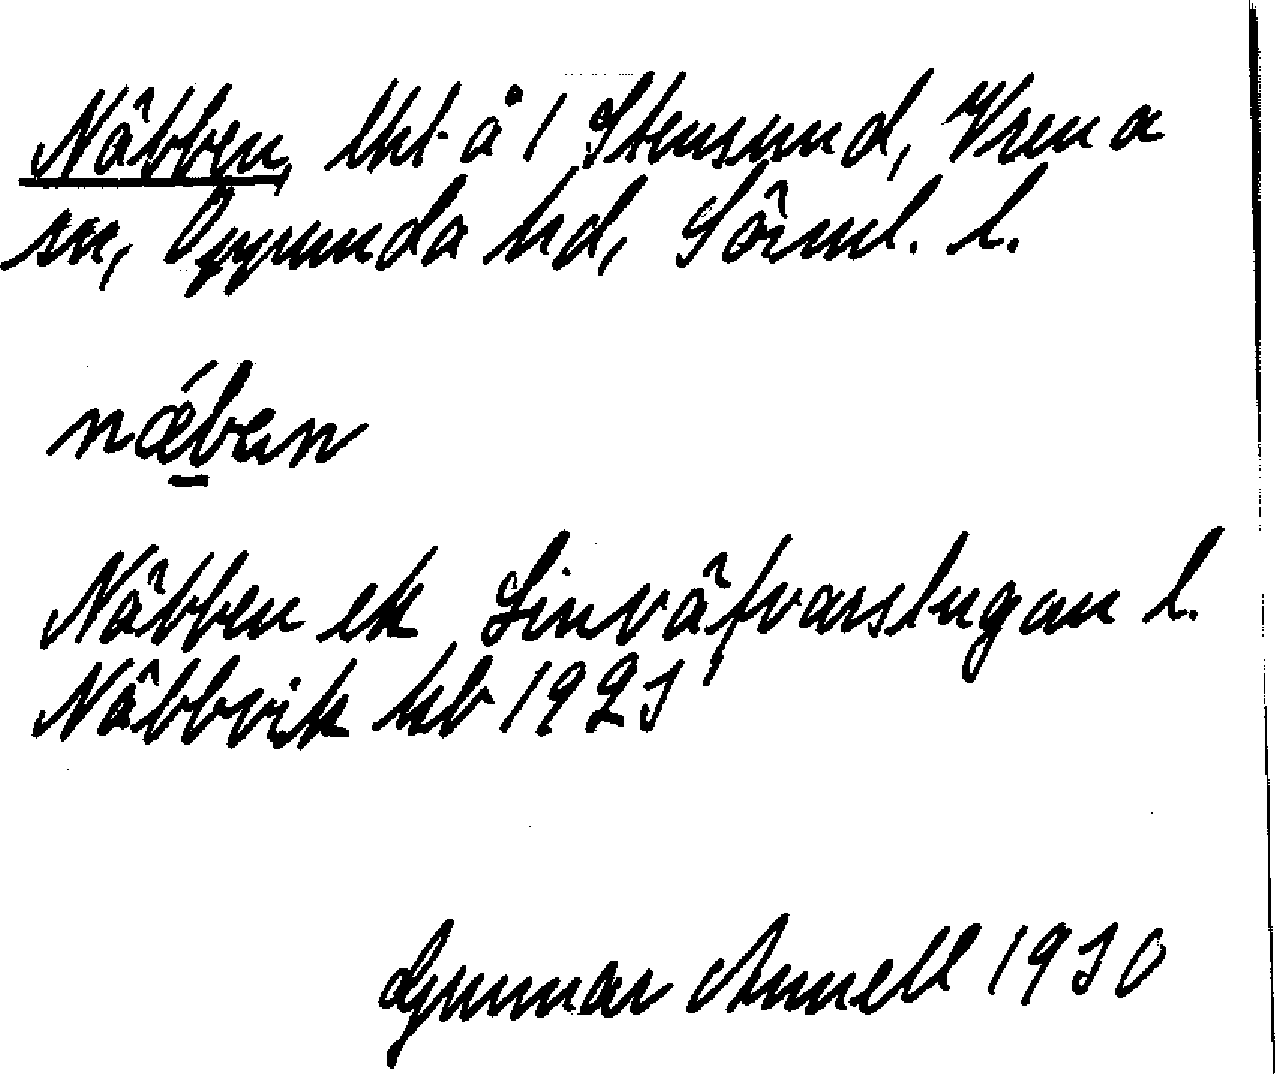 Näbben, lht å 1 Stensund, Vrena
sn, Oppunda hd, Sörml. l.
næ̀ben
Näbben el. Linväfvarstugan l.
Näbbvik kb 1925
Gunnar Arnell 1930